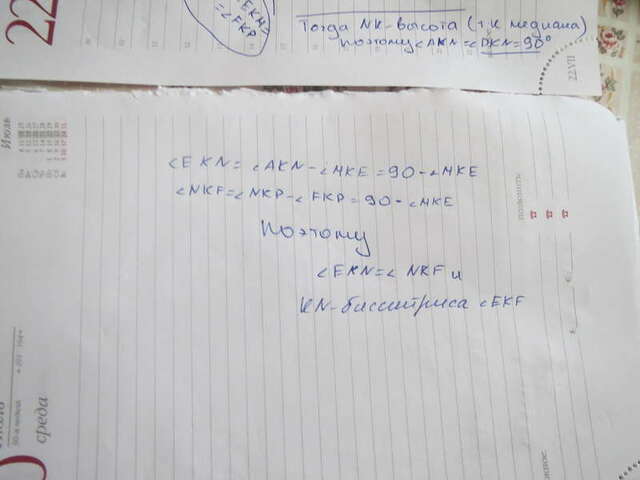 22
∠EKH=
=∠FKP
Тогда NK-высота (т.к медиана)
Поэтому ∠AKN=∠PKN=90°
22.VII
Июль
∠EKN=∠AKN-∠MKE=90-∠MKE
∠NKF=∠NKP-∠FKP=90-∠MKE
Поэтому
∠EKN=∠NKF и
KN-биссктриса ∠EKF
позвонить
среда